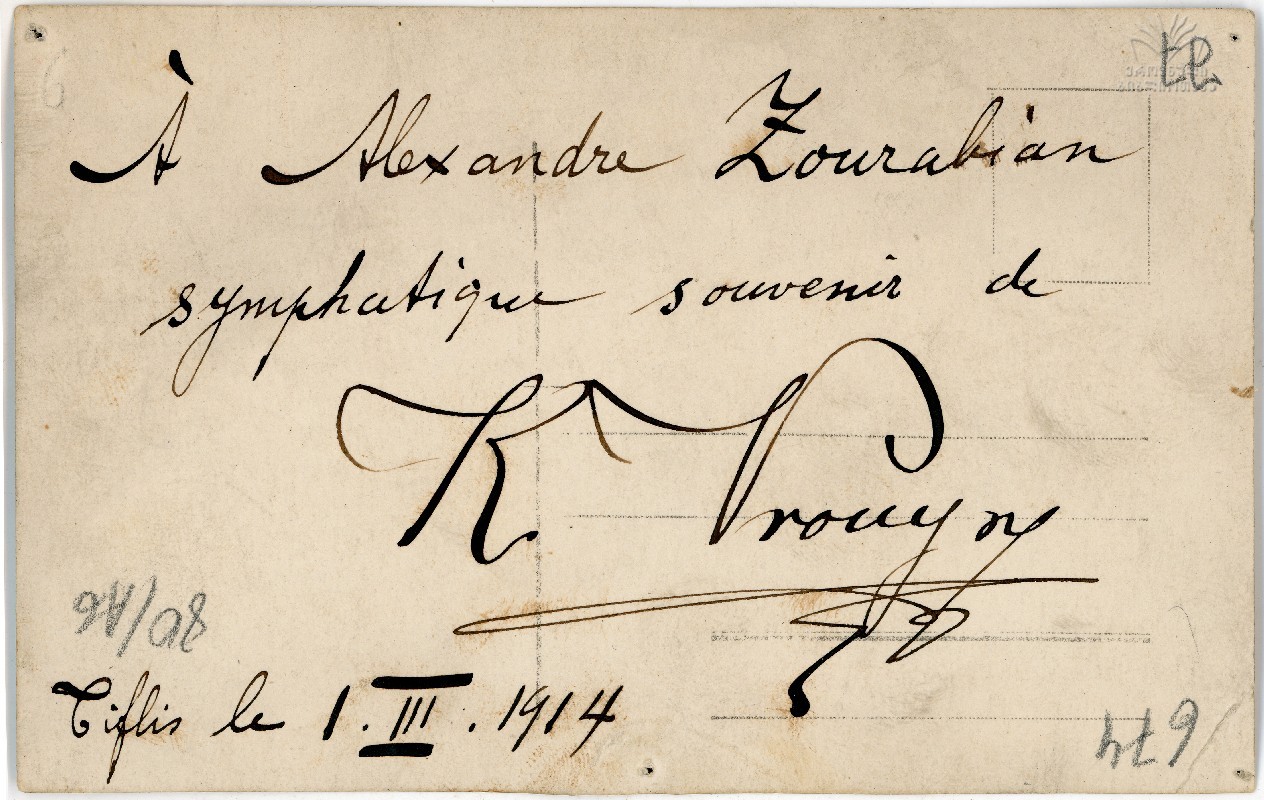 À Alexandre Zourabian
symphatique souvenir de
K Prouyn
Tiflis le 1. III. 1914